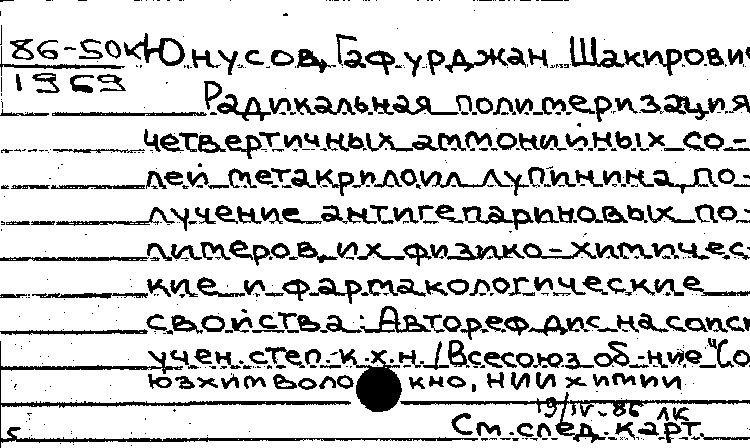 86-50к Юнусов, Гафурджан Шакирович
1969
Радикальная полимеризация
четвертичных аммонийных со-
лей метакрилоил лупинина, по-
лучение антигепариновых по-
лимеров, их физико-химичес-
кие и фармакологические
свойства: Автореф. дис. на соиск
учен. степ. к.х.н. / Всесоюз об-ние "Со
юзхимволокно, НИИ химии
19/IV-86 ЛК
См. след. карт.
5